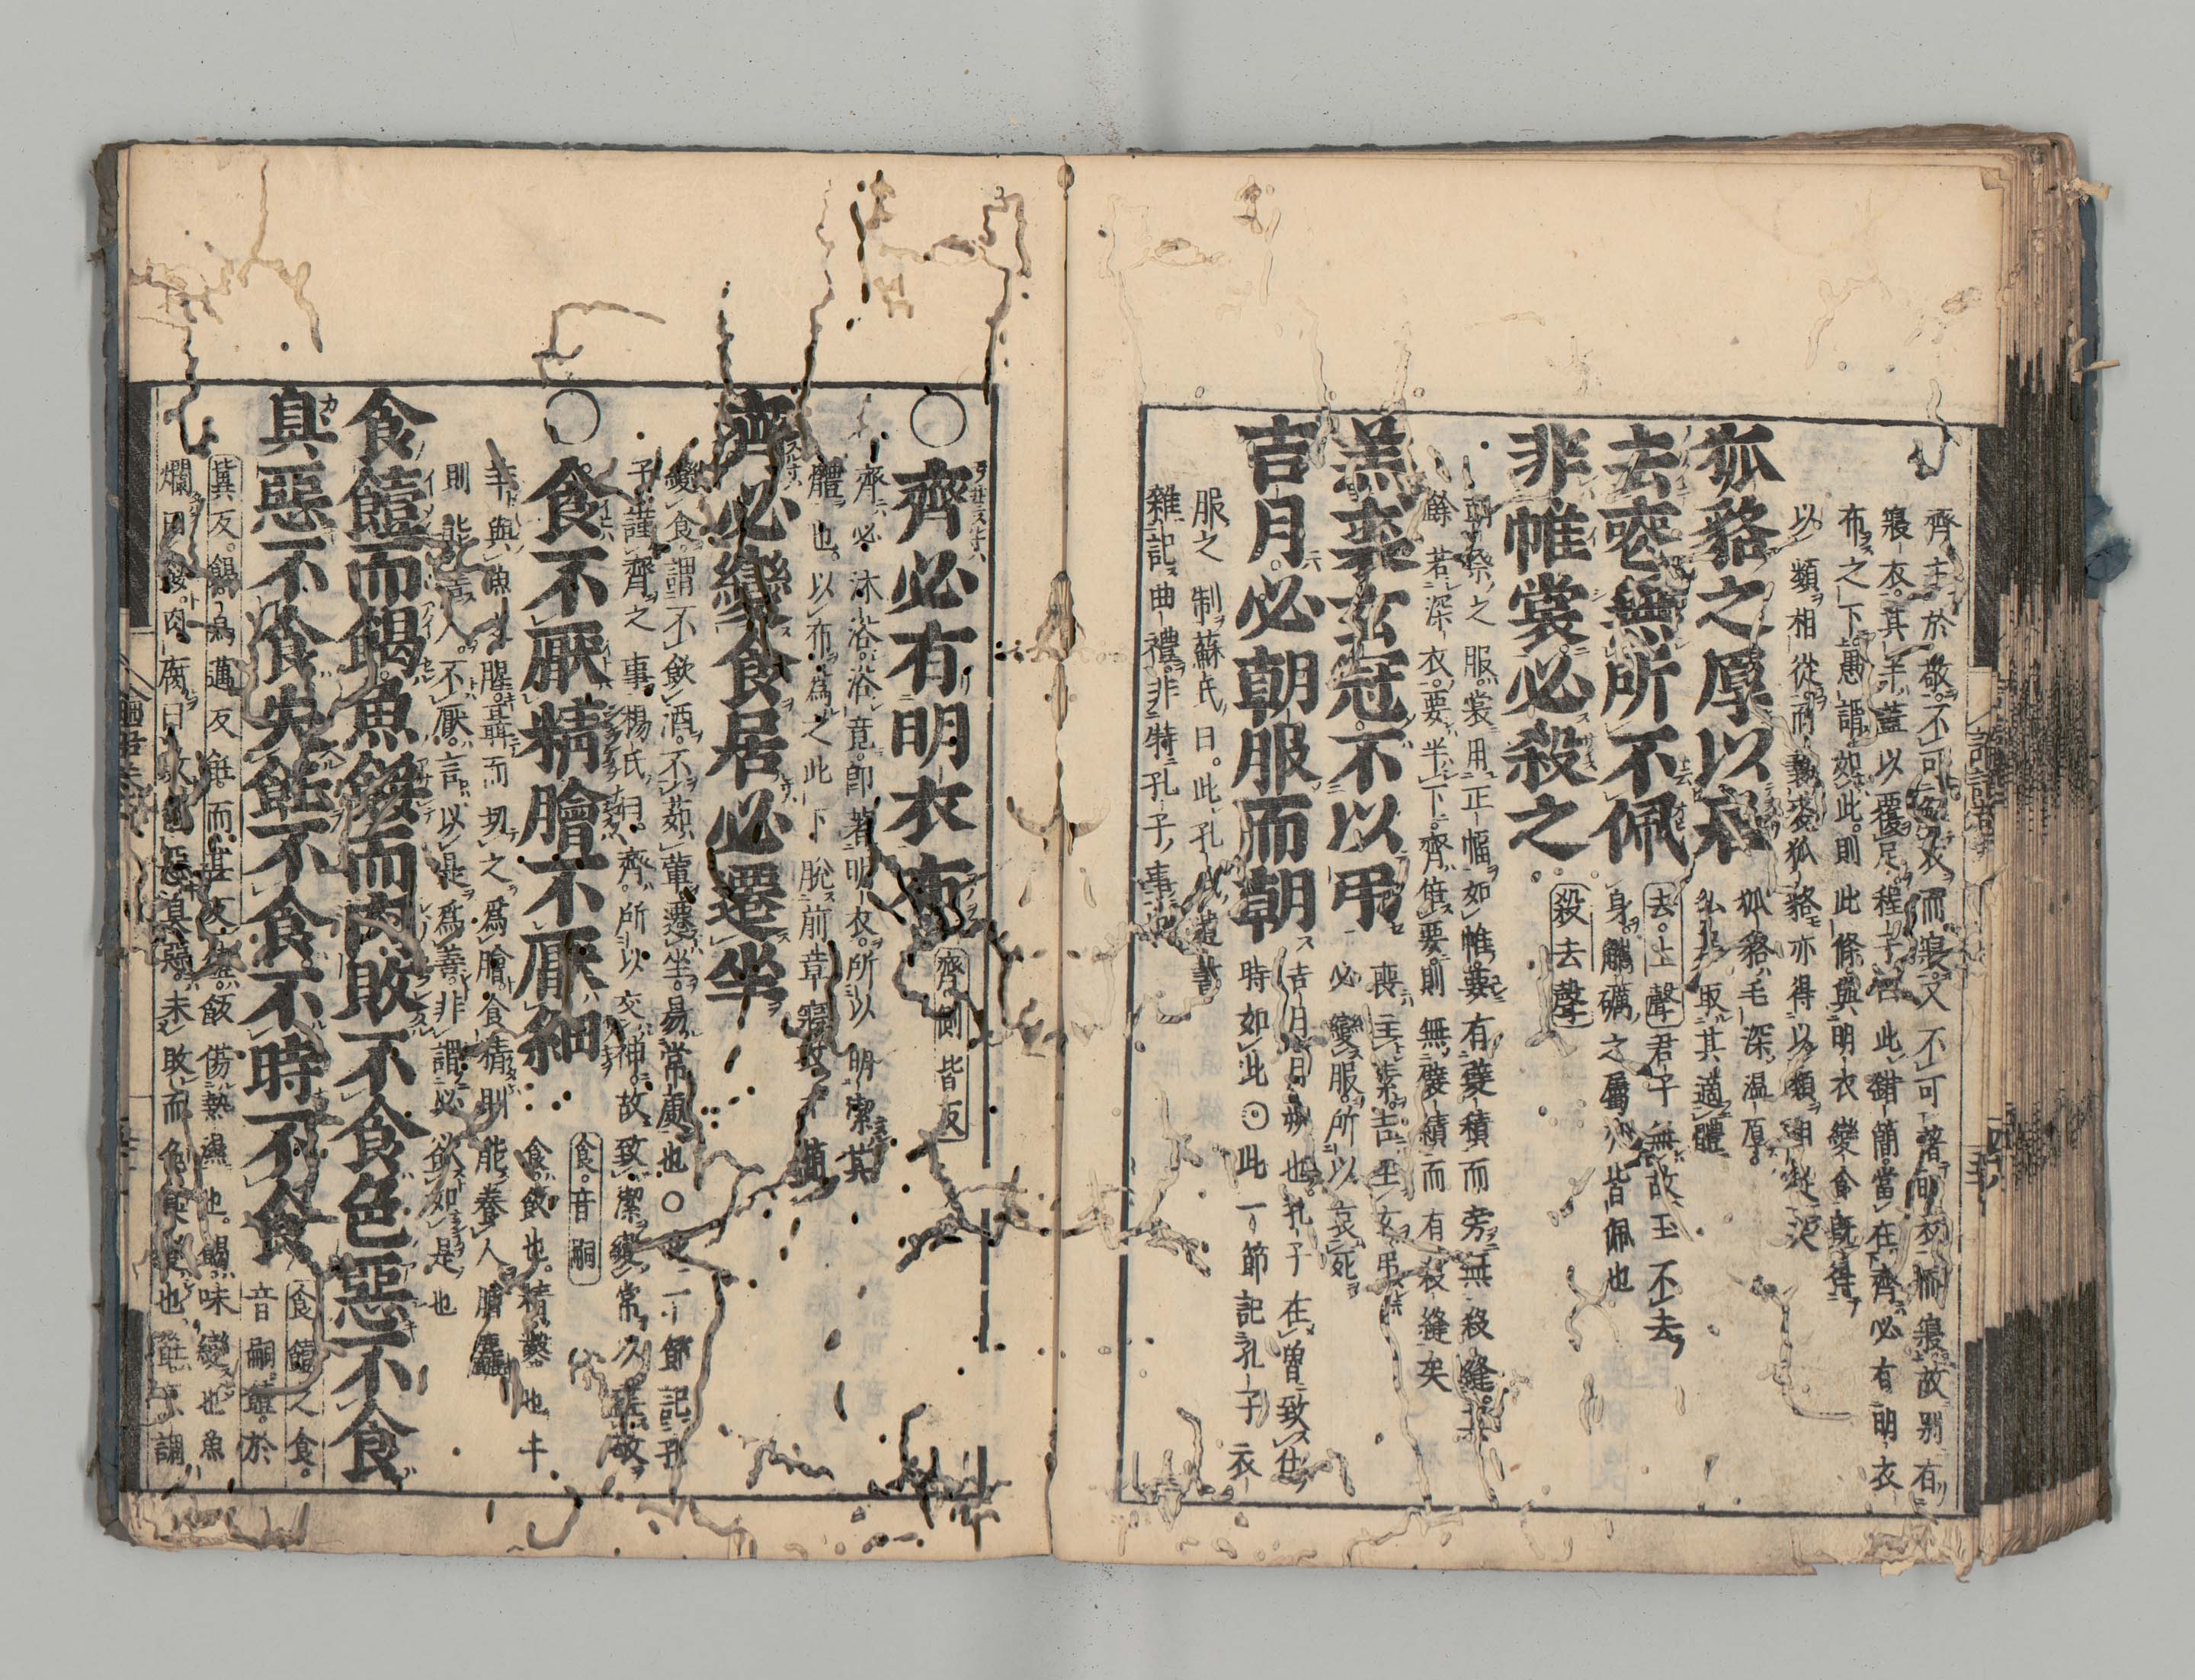 齊主於敬不可解衣而寢又不可著明衣而寢故別有
寢衣其半蓋以覆足程子曰此錯簡當在齊必有明衣
布之下愚謂如此則此條與明衣變食既得
以類相從而褻裘狐貉亦得以類相從
狐貉之厚以居
狐貉毛深温厚
私居取其適體
去喪無所不佩
去上聲君子無故玉不去
身觿礪之屬亦皆佩也
非帷裳必殺之
殺去聲
朝祭之服裳用正幅如帷要有襞積而旁無殺縫其
餘若深衣要半下齊倍要則無襞積而有殺縫矣
羔裘玄冠不以弔
喪主素吉主玄弔
必變服所以哀死
吉月必朝服而朝
吉月月朔也孔子在魯致仕
時如此◎此一節記孔子衣
服之制蘇氏曰此孔氏遺書
雜記曲禮非特孔子事也
○齊必有明衣布
齊側皆反
齊必沐浴浴竟卽著明衣所以明潔其
體也以布為之此下脫前章寢衣一簡
齊必變食居必遷坐
變食謂不飲酒不茹葷遷坐易常處也○此一節記孔
子謹齊之事楊氏曰齊所以交神故致潔變常以盡敬
○食不厭精膾不厭細
食音嗣
食飯也精鑿也牛
羊與魚之腥聶而切之爲膾食精則能養人膾麤
則能害人不厭言以是爲善非謂必欲如是也
食饐而餲魚餒而肉敗不食色惡不食
臭惡不食失飪不食不時不食
食饐之食
音嗣饐於
冀反餲烏邁反飪而甚反
饐飯傷熱濕也餲味變也魚
爛曰餒肉腐曰敗色惡臭惡未敗而色臭變也飪烹調